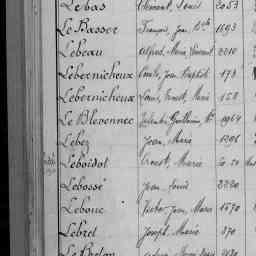 Lebas Clément, Louis 2053
Le Basser François, Jean, Bte 1893
Lebeau Alfred, Marie, Vincent 2210
Lebernicheux Emile, Jean Baptiste 173
Lebernicheux Louis, Ernest, Marie 158
Le Blevennec Guillaume, Me 1964
Lebez Jean, Marie 1296
Leboidot Ernest, Marie
Lebossé Jean, Louis 2220
Lebouc Victor, Jean, Marie 1570
Lebret Joseph, Marie 370
Le Breton